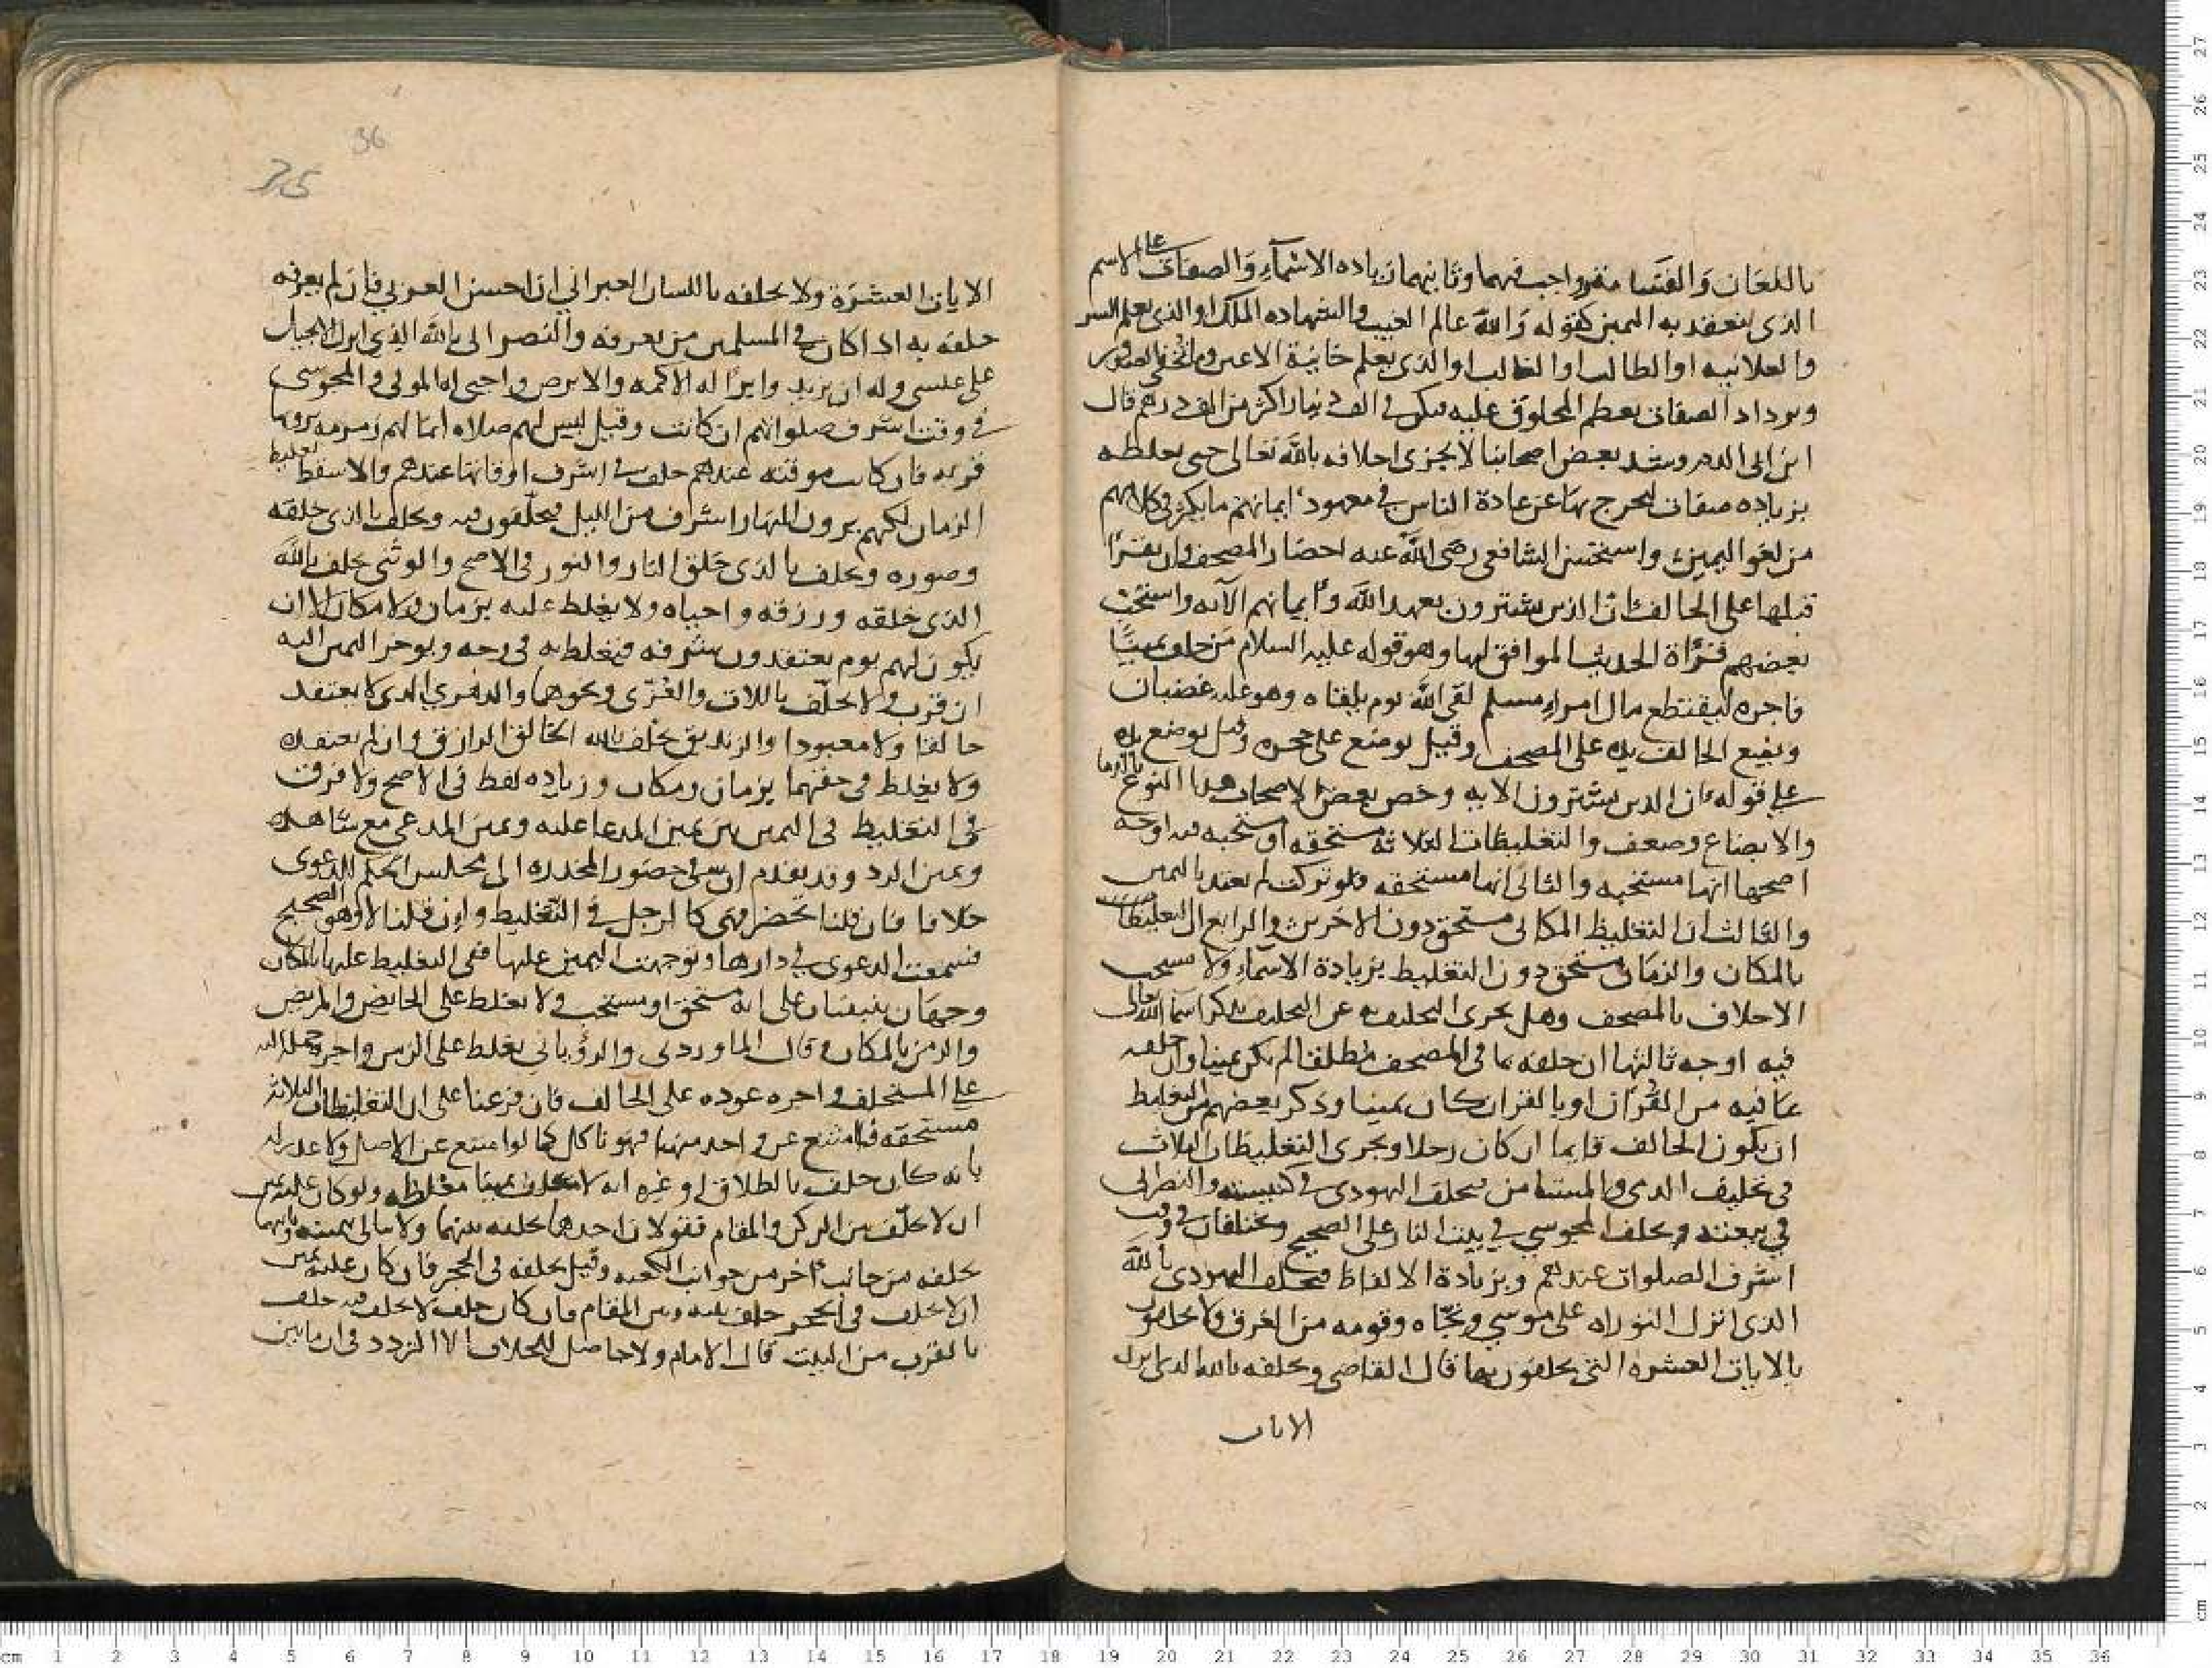 باللعان والقسامة فواجب فيهما وثانيهما زياده الاسماء والصفات على الاسم
الذى ينعقد به اليمين كقوله والله عالم الغيب والشهاده الملك او الذى يعلم السر
والعلانيه او الطالب او الغالب او الذى يعلم خاينة الاعين وما تخفى الصدور
ويزداد الصفات بعظم المحلوف عليه فيكون فى الف دينار اكثر من الف درهم قال
ابن ابى الدم وشد بعض اصحابنا لا يجزى احلافه بالله تعالى حتى يغلظه
بزياده صفات ليخرج بها عن عادة الناس فى معهود ايمانهم ما يكثر فى كلامهم
من لغو اليمين واستحسن الشافعى رضى الله عنه احضار المصحف وان يقرأ
قبلها على الحالف ان الذين يشترون بعهد الله وأيمانهم الآيه واستحب
بعضهم قرأة الحديث الموافق لها وهو قوله عليه السلام من حلف يمينًا
فاجره ليقتطع مال امرء مسلم لقى الله يوم يلقاه وهو عليه غضبان
ويضع الحالف يده على المصحف وقيل يوضع على حجره وقيل يوضع يده
على قوله ان الذين يشترون الايه وخص بعض الاصحاب هذا النوع بالدما
والابضاع وضعف والتغليظات الثلاثة مستحقه او مستحبه فيه اوجه
اصحها انها مستحبه والثانى انها مستحقه فلو تركت لم يعتد باليمين
والثالث ان التغليظ المكانى مستحق دون الاخرين والرابع ان التغليظات
بالمكان والزمان مستحق دون التغليظ بزيادة الاسماء ولا يستحب
الاحلاف بالمصحف وهل يجزى التحليف به عن التحليف بذكر اسما الله تعالى
فيه اوجه ثالثها ان حلفه بما فى المصحف مطلقا لم يكن يمينا وان حلفه
بما فيه من القرآن او بالقران كان يمينا وذكر بعضهم من التغليظ
ان يكون الحالف قايما ان كان رجلا ويجرى التغليظات الثلاث
فى تحليف الذمى والمستامن فيحلف اليهودى فى كنيسته والنصرانى
فى بيعته ويحلف المجوسي في بيت النار على الصحيح ويختلفان فى وقت
اشرف الصلوات عندهم وبزيادة الالفاظ فيحلف اليهودى بالله
الذى انزل التوراه على موسي ونجّاه وقومه من الغرق ولا يحلفون
بالايات العشره التى يحلفون بها قال القاضى ويحلفه بالله الذى انزل
الايات
الايات العشرة ولا يحلفه باللسان العبراني ان احسن العربي فان لم يعرفه
حلفه به اذا كان في المسلمين من يعرفه والنصرانى بالله الذى انزل الانجيل
على عيسى وله ان يزيد وابرأ له الاكمه والابرص واحيى له الموتى والمجوسي
فى وقت اشرف صلواتهم ان كانت وقيل ليس لهم صلاه انما لهم زمزمه يرونها
قربه فان كانت موقته عندهم حلف فى اشرف اوقاتها عندهم والا سقط تغليظ
الزمان لكنهم يرون النهار اشرف من الليل فيحلّفون فيه ويحلف بالذى خلقه
وصوره ويحلف بالذى خلق النار والنور فى الاصح والوثنى يحلف بالله
الذى خلقه ورزقه واحياه ولا يغلظ عليه بزمان ولا مكان الا ان
يكون لهم يوم يعتقدون شرفه فيغلظ به فى وجه ويوخر اليمين اليه
ان قرب ولا يحلّف باللات والعُزّى ونحوهما والدهري الذى لا يعتقد
خالقا ولا معبودا والزنديق يحلف بالله الخالق الرازق وان لم يعتقده
ولا يغلظ فى حقهما بزمان ومكان وزياده لفظ فى الاصح ولا فرق
فى التغليظ فى اليمين بين يمين المدعا عليه ويمين المدعى مع شاهده
ويمين الرد وقد تقدم ان فى حضور المخدره الى مجلس الحكم للدعوى
خلافا فان قلنا تحضر فهى كالرجل في التغليظ وان قلنا لا وهو الصحيح
فسمعت الدعوى فى دارها وتوجهت اليمين عليها ففى التغليظ عليها بالمكان
وجهان ينبنيان على انه مستحق او مستحب ولا يغلظ على الحايض والمريض
والزمن بالمكان وقال الماوردى والرؤيانى يغلظ على الزمن واجرة حمله اليه
على المستحلف واجره عوده على الحالف فان فرعنا على ان التغليظات الثلاثه
مستحقه فامتنع عن واحد منها فهو ناكل كما لو امتنع عن الاصل ولا عذر له
بانه كان حلف بالطلاق او غيره انه لا يحلف يمينا مغلظه ولو كان عليه يمين
ان لا يحلّف بين الركن والمقام فقولان احدهما يحلفه بينهما ولا يبالى بيمينه وثانيهما
يحلفه من جانب آخر من جوانب الكعبه وقيل يحلفه فى الحجر فان كان عليه يمين
ان لا يحلف فى الحجر حلف بينه وبين المقام فان كان حلف لا يحلف فيه حلف
بالقرب من البيت قال الامام ولا حاصل للخلاف الا التردد فى ان ما بين